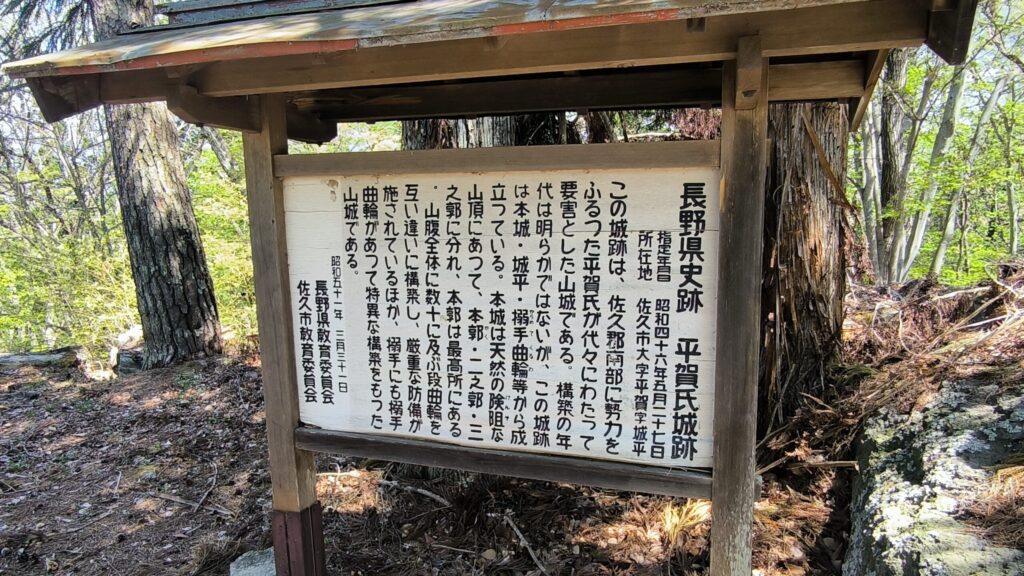 長野県史跡　平賀氏城跡
指定年月日　昭和四十六年五月二十七日
所在地　佐久市大字平賀字城平
この城跡は、佐久郡南部に勢力を
ふるつた平賀氏が代々にわたって
要害とした山城である。構築の年
代は明らかではないが、この城跡
は本城・城平・搦手曲輪等から成
立つている。本城は天然の険阻な
山頂にあつて、本郭・二之郭・三
之郭に分れ、本郭は最高所にある
。山腹全体に数十に及ぶ段曲輪を
互い違いに構築し、厳重な防備が
施されているほか、搦手にも搦手
曲輪があつて特異な構築をもった
山城である。
昭和五十一年　三月三十一日
長野県教育委員会
佐久市教育委員会